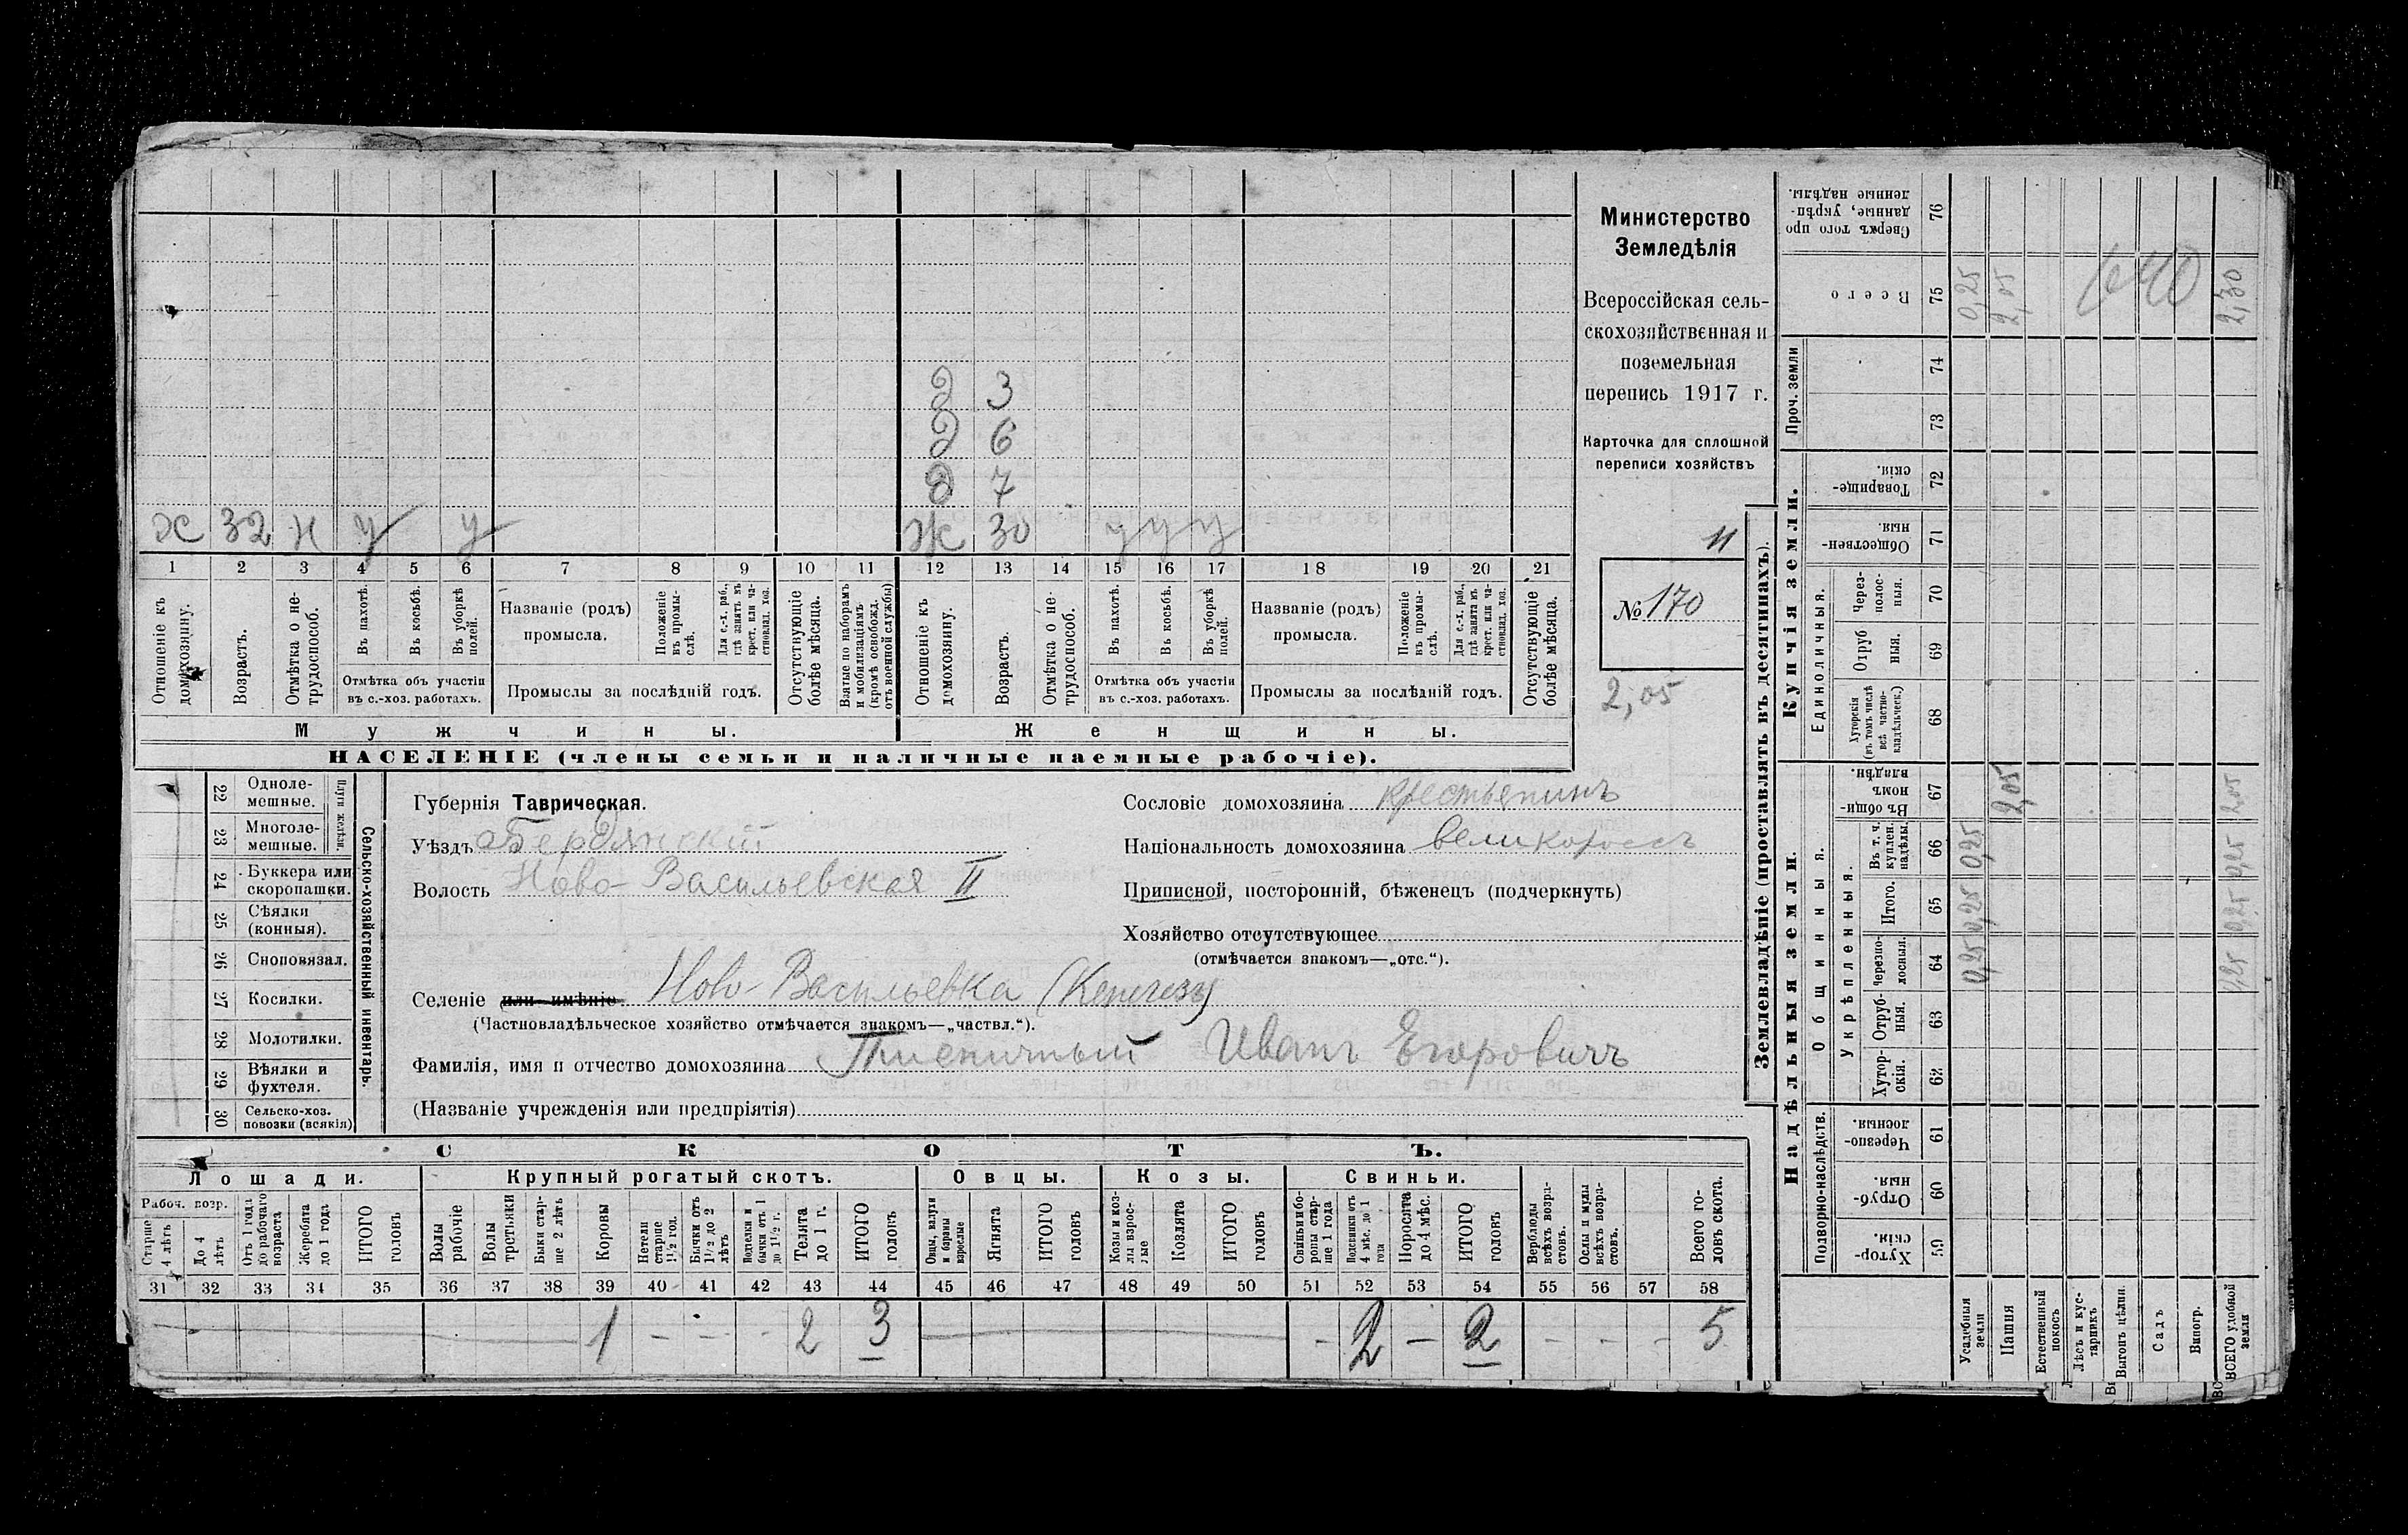 Министерство
Земледѣлія
Всероссійская сель-
скохозяйственная и
поземельная
перепись 1917 г.
Карточка для сплошной
переписи хозяйствъ
II
№ 170
2,05
д 3
д 6
д 7
х 32 н у у
ж 30 у у у
1 2 3 4 5 6 7 8 9 10 11 12 13 14 15 16 17 18 19 20 21
Отношеніе къ домохозяину.
Возрастъ.
Отмѣтка о не-
трудоспособ.
Въ пахотѣ.
Въ косьбѣ.
Въ уборкѣ полей.
Отмѣтка объ участіи
въ с.-хоз. работахъ.
Названіе (родъ)
промысла.
Положеніе въ промы-
слѣ.
Для с.-х. раб.,
гдѣ занятъ въ
крест. или ча-
стновлад. хоз.
Промыслы за послѣдній годъ.
Отсутствующіе
болѣе мѣсяца.
Взятые по наборамъ
и мобилизаціямъ
(кромѣ освобожд.
отъ военной службы)
Отношеніе къ
домохозяину.
Возрастъ.
Отмѣтка о не-
трудоспособ.
Въ пахотѣ.
Въ косьбѣ.
Въ уборкѣ
полей.
Отмѣтка объ участіи
въ с.-хоз. работахъ.
Названіе (родъ)
промысла.
Положеніе
въ промы-
слѣ.
Для с.-х. раб.,
гдѣ занята въ
крест. или ча-
стновлад. хоз.
Промыслы за послѣдній годъ.
Отсутствующіе
болѣе мѣсяца.
Мужчины.
Женщины.
НАСЕЛЕНІЕ (члены семьи и наличные наемные рабочіе).
22 Одноле-
мешные.
23 Многоле-
мешные.
Плуги желѣзн.
24 Буккера или
скоропашки.
25 Сѣялки
(конныя).
26 Сноповязал.
27 Косилки.
28 Молотилки.
29 Вѣялки и
фухтеля.
30 Сельско-хоз.
повозки (всякія)
Сельско-хозяйственный инвентарь.
Губернія Таврическая.
Уѣздъ Бердянскій
Волость Ново-Васильевская II
Сословіе домохозяина крестьянинъ
Національность домохозяина великороссъ
Приписной, посторонній, бѣженецъ (подчеркнуть)
Хозяйство отсутствующее
(отмѣчается знакомъ—„отс.“).
Селеніе или имѣніе Ново-Васильевка (Кенегезъ)
(Частновладѣльческое хозяйство отмѣчается знакомъ—„частвл.“).
Фамилія, имя и отчество домохозяина Пшеничный Иванъ Егоровичъ
(Названіе учрежденія или предпріятія)
СКОТЪ.
Лошади.
Крупный рогатый скотъ.
Овцы.
Козы.
Свиньи.
Рабоч. возр.
Старше
4 лѣтъ
До 4
лѣтъ
Отъ 1 года
до рабочаго
возраста
Жеребята
до 1 года
ИТОГО
головъ
Волы
рабочіе
Волы
третьяки
Быки стар-
ше 2 лѣтъ
Коровы
Нетели
старше
1½ год.
Бычки отъ
1½ до 2
лѣтъ
Подтелки и
бычки отъ 1
до 1½ г.
Телята
до 1 г.
ИТОГО
головъ
Овцы, валухи
и бараны
взрослые
Ягнята
ИТОГО
головъ
Козы и коз-
лы взрос-
лые
Козлята
ИТОГО
головъ
Свиньи и бо-
ровы стар-
ше 1 года
Подсвинки отъ
4 мѣс. до 1
года
Поросята
до 4 мѣс.
ИТОГО
головъ
Верблюды
всѣхъ возра-
стовъ.
Ослы и мулы
всѣхъ возра-
стовъ.
Всего го-
ловъ скота.
31 32 33 34 35 36 37 38 39 40 41 42 43 44 45 46 47 48 49 50 51 52 53 54 55 56 57 58
1 – – – 2 3 – 2 – 2 – – – 5
Землевладѣніе (проставлять въ десятинахъ).
Надѣльныя земли.
Купчія земли.
Проч. земли
Подворно-наслѣдств.
Общинныя.
Укрѣпленныя.
Единоличныя.
Сверхъ того про
данные, укрѣп-
ленные надѣлы.
76
Всего
75
74
73
Товарище-
скія.
72
Обществен-
ныя.
71
Через-
полос-
ныя.
70
Отруб
ныя.
69
Хуторскія
(въ томъ числѣ
всѣ частно-
владѣльческ.)
68
Въ общин-
номъ
владѣн.
67
Въ т. ч.
куплен.
надѣлы.
66
Итого.
65
Черезпо-
лосныя.
64
Отруб-
ныя.
63
Хутор-
скія.
62
Черезпо-
лосныя.
61
Отруб-
ныя.
60
Хутор-
скія.
59
Усадебныя
земли
0,25 0,25 0,25 0,25
Пашня
2,05 2,05
Естественный
покосъ
Лѣсъ и кус-
тарникъ
Выгонъ цѣлин.
Садъ
Виногр.
ВСЕГО удобной
земли
0,25 0,25 0,25 2,05 2,30
640